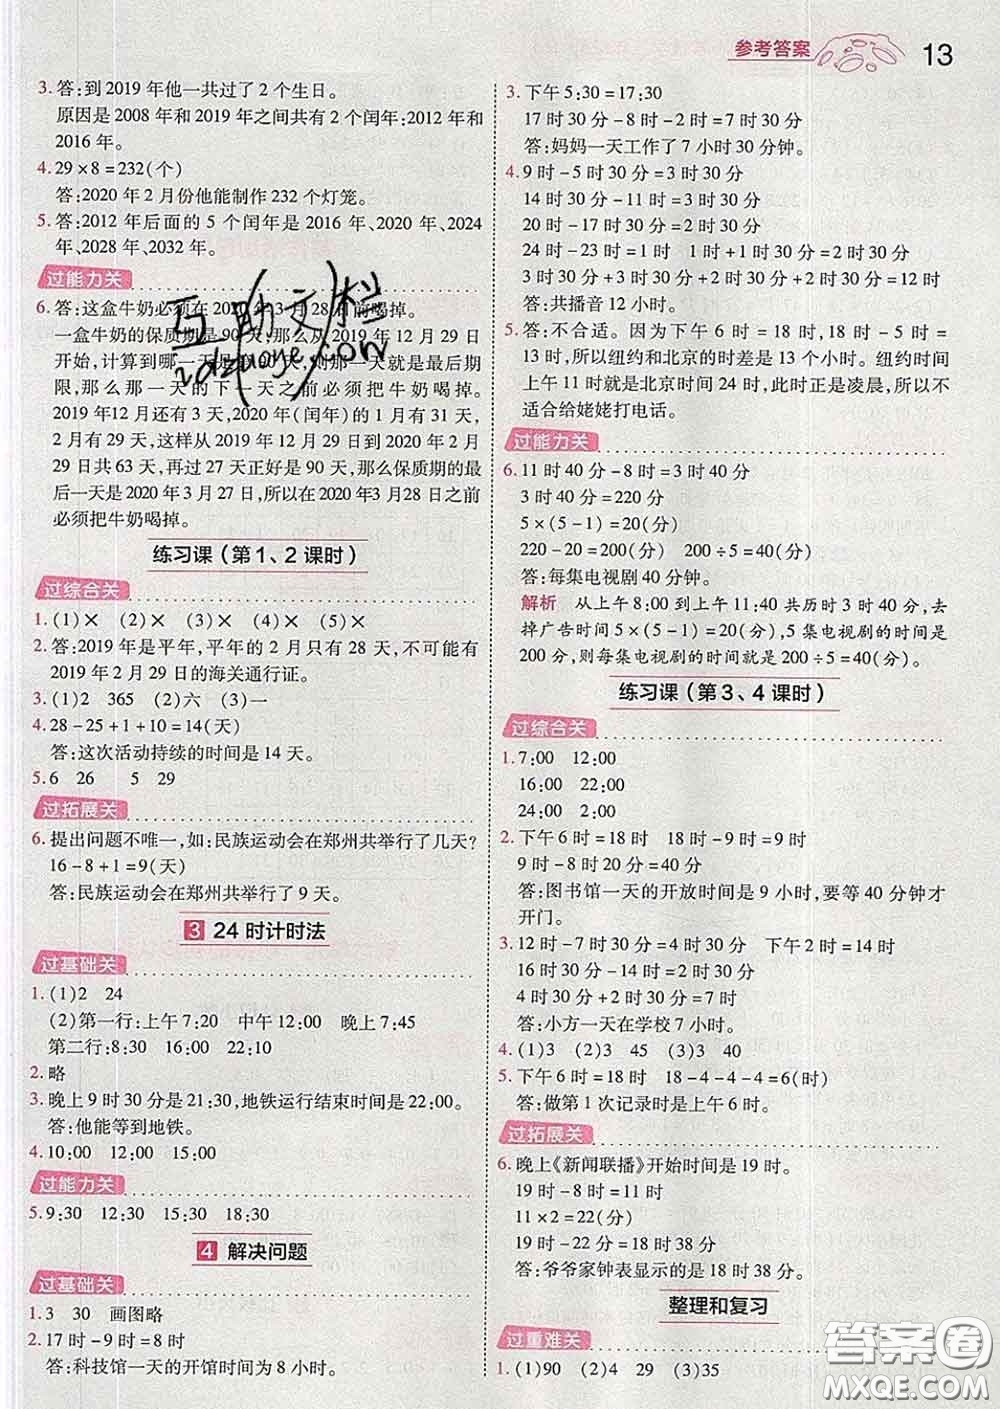 参考答案 13
3. 答:到 2019 年他一共过了 2 个生日。
原因是 2008 年和 2019 年之间共有 2 个闰年:2012 年和
2016 年。
4. 29×8=232(个)
答:2020 年 2 月份他能制作 232 个灯笼。
5. 答:2012 年后面的 5 个闰年是 2016 年、2020 年、2024
年、2028 年、2032 年。
过能力关
6. 答:这盒牛奶必须在 2020 年 3 月 28 日前喝掉。
一盒牛奶的保质期是 90 天,那么从 2019 年 12 月 29 日
开始,计算到哪一天是 90 天,则那一天就是最后期
限,那么那一天的下一天之前必须把牛奶喝掉。
2019 年12 月还有 3 天,2020 年(闰年)的 1 月有 31 天,
2 月有 29 天,这样从 2019 年 12 月 29 日到 2020 年 2 月
29 日共 63 天,再过 27 天正好是 90 天,那么保质期的最
后一天是 2020 年 3 月 27 日,所以在 2020年3月28 日之前
必须把牛奶喝掉。
互助文档
练习课(第 1、2 课时)
过综合关
1. (1)× (2)× (3)× (4)× (5)×
2. 答:2019 年是平年,平年的 2 月只有 28 天,不可能有
2019 年 2 月 29 日的海关通行证。
3. (1)2 365 (2)六 (3)一
4. 28-25+1+10=14(天)
答:这次活动持续的时间是 14 天。
5. 6 26 5 29
过拓展关
6. 提出问题不唯一,如:民族运动会在郑州共举行了几天?
16-8+1=9(天)
答:民族运动会在郑州共举行了 9 天。
3 24 时计时法
过基础关
1. (1)2 24
(2)第一行:上午 7:20 中午 12:00 晚上 7:45
第二行:8:30 16:00 22:10
2. 略
3. 晚上 9 时 30 分是 21:30,地铁运行结束时间是 22:00。
答:他能等到地铁。
4. 10:00 12:00 15:00
过能力关
5. 9:30 12:30 15:30 18:30
4 解决问题
过基础关
1. 3 30 画图略
2. 17 时-9 时=8 时
答:科技馆一天的开馆时间为 8 小时。
3. 下午 5:30=17:30
17 时 30 分-8 时-2 时=7 时 30 分
答:妈妈一天工作了 7 小时 30 分钟。
4. 9 时-5 时 30 分=3 时 30 分
14 时 30 分-11 时=3 时 30 分
20 时-17 时 30 分=2 时 30 分
24 时-23 时=1 时 1 时+1 时 30 分=2 时 30 分
3 时 30 分+3 时 30 分+2 时 30 分+2 时 30 分=12 时
答:共播音 12 小时。
5. 答:不合适。因为下午 6 时=18 时,18 时-5 时=
13 时,所以纽约和北京的时差是 13 个小时。纽约时间
上午 11 时就是北京时间 24 时,此时正是凌晨,所以不
适合给姥姥打电话。
过能力关
6. 11 时 40 分-8 时=3 时 40 分
3 时 40 分=220 分
5×(5-1)=20(分)
220-20=200(分) 200÷5=40(分)
答:每集电视剧 40 分钟。
解析 从上午 8:00 到上午 11:40 共历时 3 时 40 分,去
掉广告时间 5×(5-1)=20(分),5 集电视剧的时间是
200 分,则每集电视剧的时间就是 200÷5=40(分)。
练习课(第 3、4 课时)
过综合关
1. 7:00 12:00
16:00 22:00
24:00 2:00
2. 下午 6 时=18 时 18 时-9 时=9 时
9 时-8 时 20 分=40 分
答:图书馆一天的开放时间是 9 小时,要等 40 分钟才
开门。
3. 12 时-7 时 30 分=4 时 30 分 下午 2 时=14 时
16 时 30 分-14 时=2 时 30 分
4 时 30 分+2 时 30 分=7 时
答:小方一天在学校 7 小时。
4. (1)3 (2)3 45 (3)3 40
5. 下午 6 时=18 时 18-4-4-4=6(时)
答:做第 1 次记录时是上午 6 时。
过拓展关
6. 晚上《新闻联播》开始时间是 19 时。
19 时-8 时=11 时
11×2=22(分)
19 时-22 分=18 时 38 分
答:爷爷家钟表显示的是 18 时 38 分。
整理和复习
过重难关
1. (1)90 (2)4 29 (3)35
答案圈
MXQE.COM